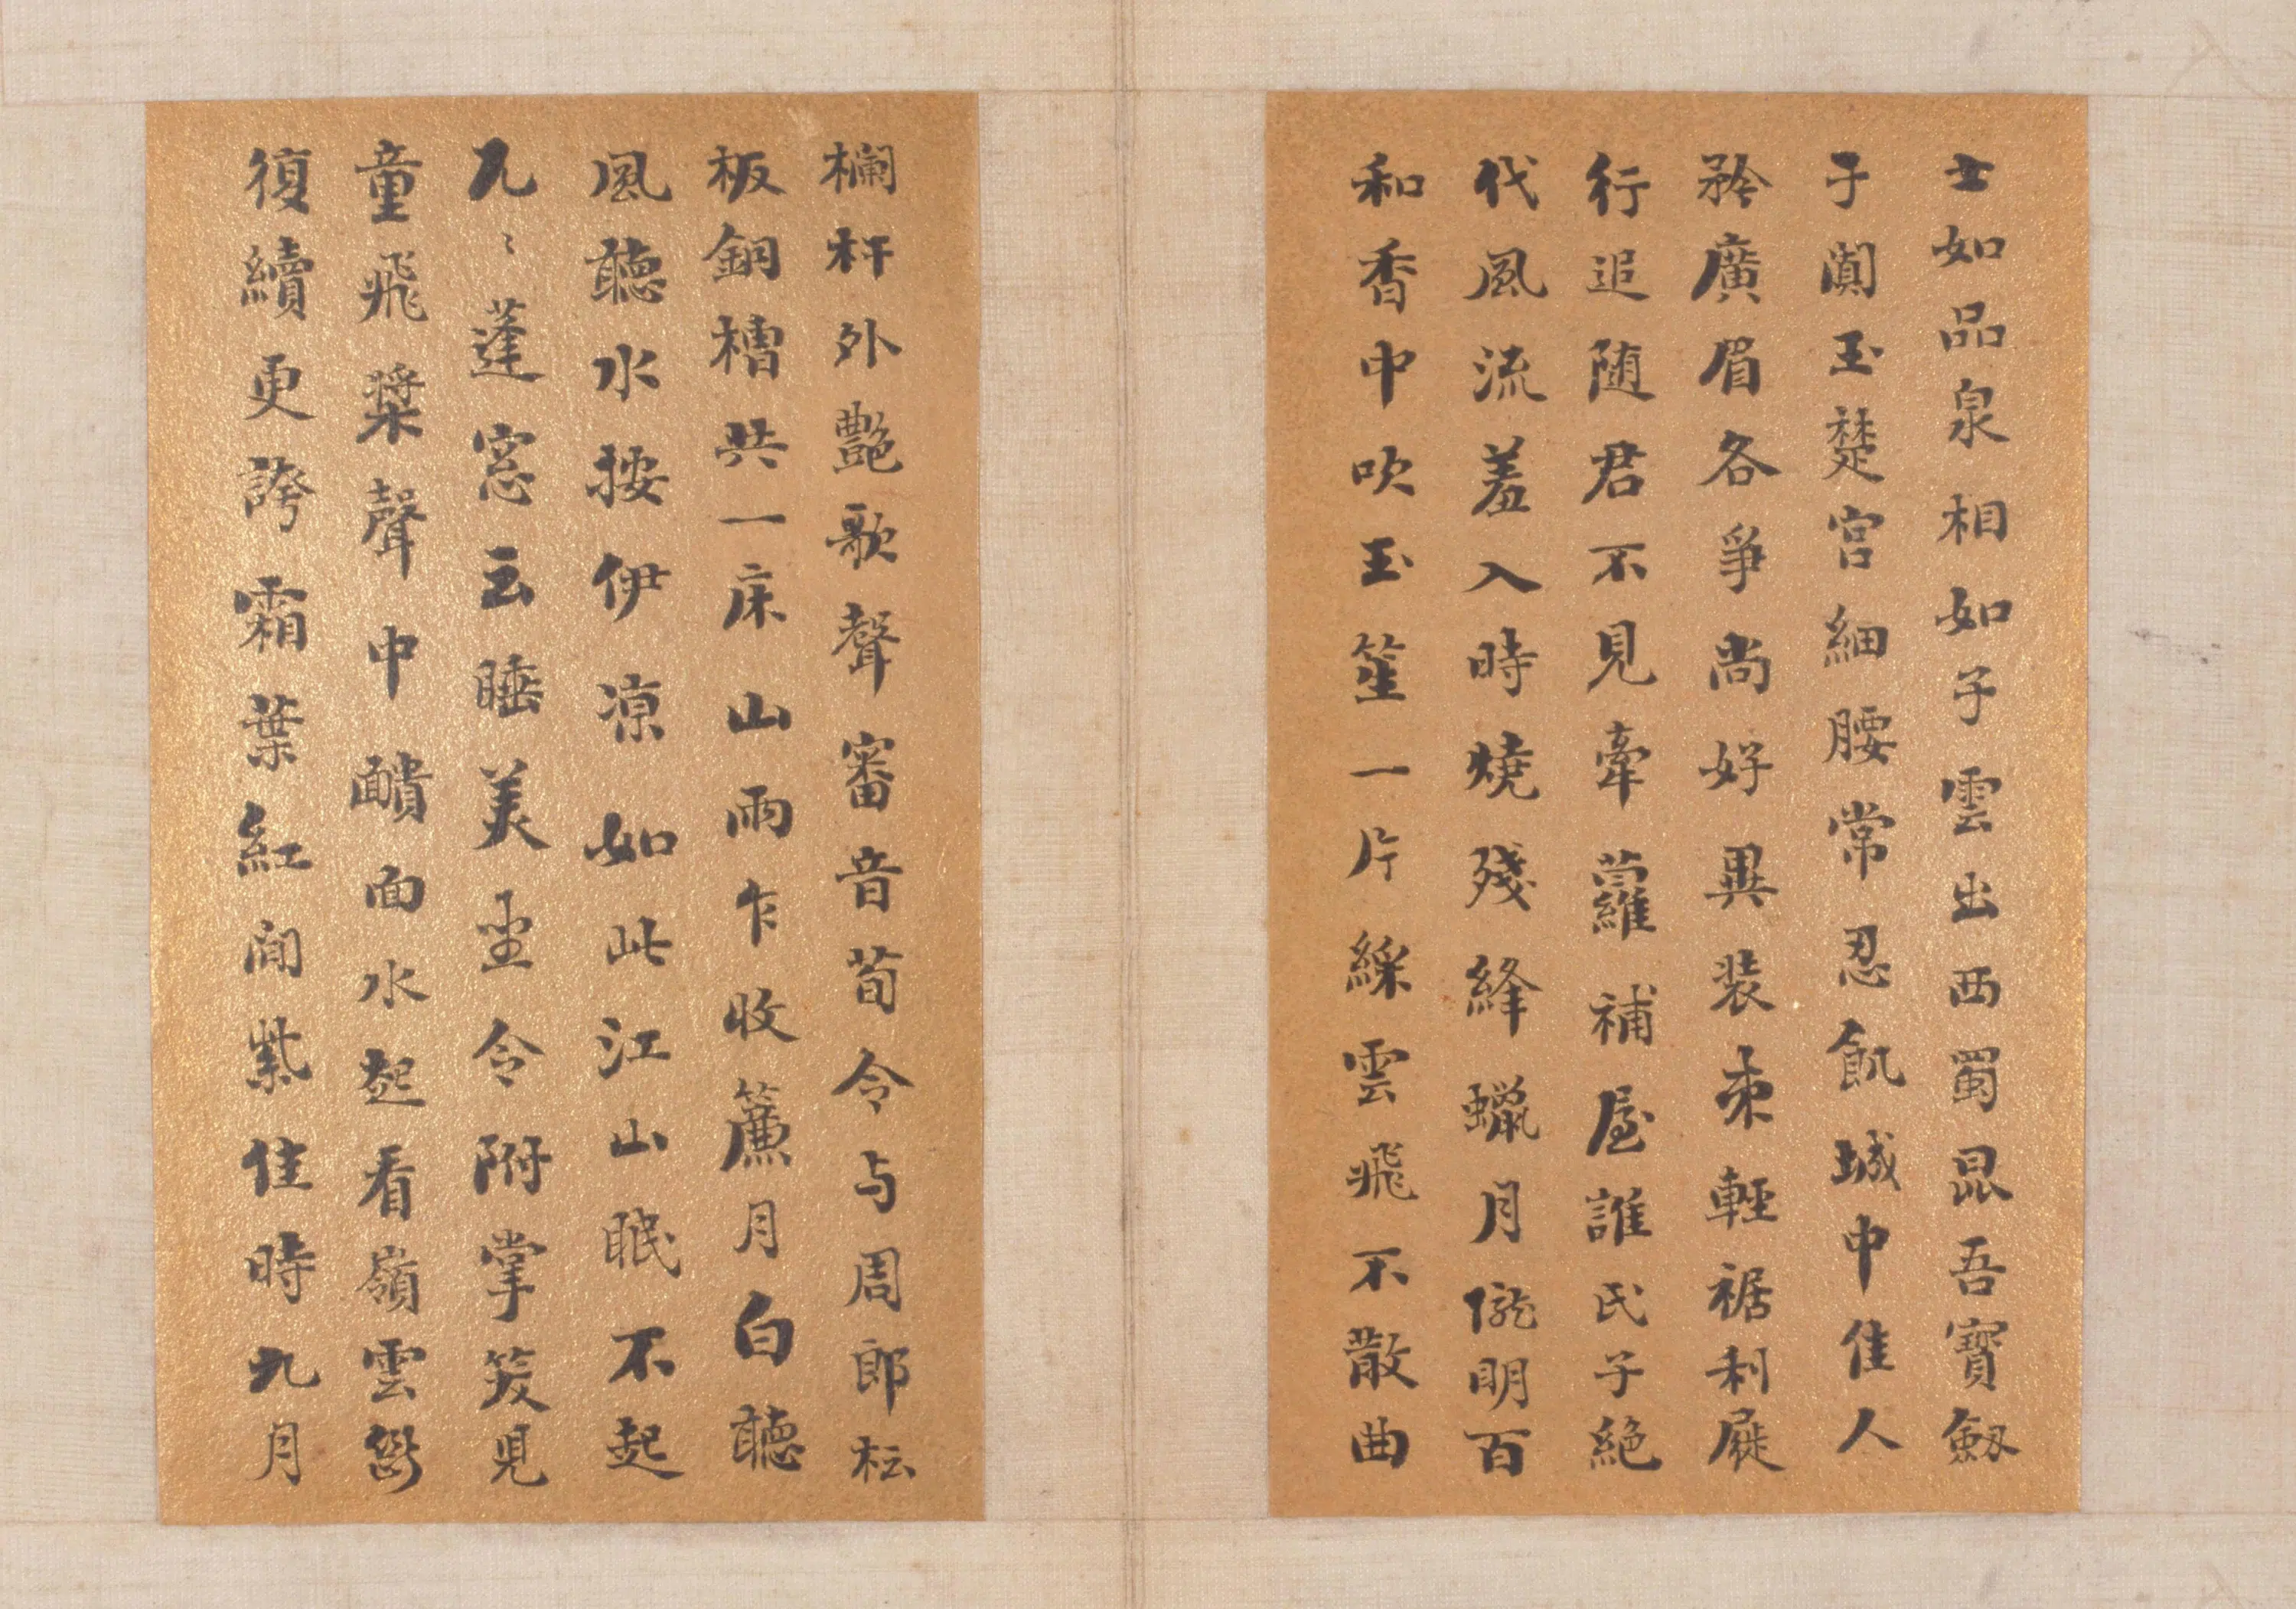 士如品泉相如子雲出西蜀昆吾寶劔
子闐玉楚宮細腰常忍飢城中佳人
矜廣眉各爭尚好異装束輕裾利屣
行追随君不見牽蘿補屋誰氏子絶
代風流羞入時燒殘絳蠟月朧明百
和香中吹玉笙一片綵雲飛不散曲
欄杆外艷歌聲審音荀令与周郎
板銅槽共一床山雨乍收簾月白聽
風聽水按伊凉如此江山眠不起
兀〻蓬窓云睡美坐令附掌笑見
童飛槳聲中靧面水起看嶺雲
復續更誇霜葉紅間紫佳時九月